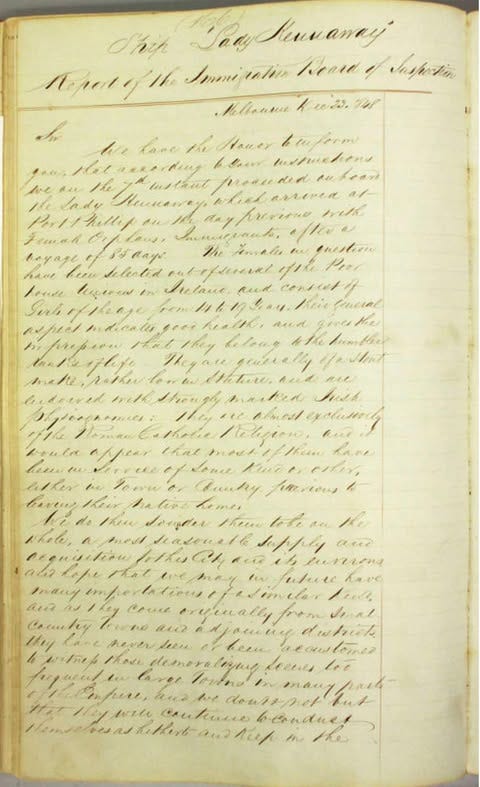 Ship "Lady Kennaway"
Report of the Immigration Board of Inspection
Melbourne Dec 23. 1848
Sir
We have the Honor to inform
you, that according to your instructions
we on the 7th instant proceeded on board
the Lady Kennaway, which arrived at
Port Phillip on the day previous with
Female Orphans, Immigrants, after a
voyage of 85 days. The Females in question
have been selected out of several of the Poor
house Unions in Ireland, and consist of
Girls of the age from 14 to 19 Years, their General
aspect indicates good health, and gives the
impression that they belong to the humbler
ranks of life. They are generally of a stout
make, rather low in Stature, and are
endowed with strongly marked Irish
physiognomies: they are almost exclusively
of the Roman Catholic Religion, and it
would appear that most of them have
been in Service of some kind or other,
either in Town or Country previous to
leaving their Native home.
We do then consider them to be on the
whole, a most seasonable supply and
acquisition to this City and its environs
and hope that we may in future have
many importations of a similar kind,
and as they come originally from Small
country towns and adjoining districts,
they have never seen or been accustomed
to witness those demoralizing Scenes, too
frequent in large Towns in many parts
of the Empire, and we doubt not but
that they will continue to conduct
themselves as hitherto and keep in the